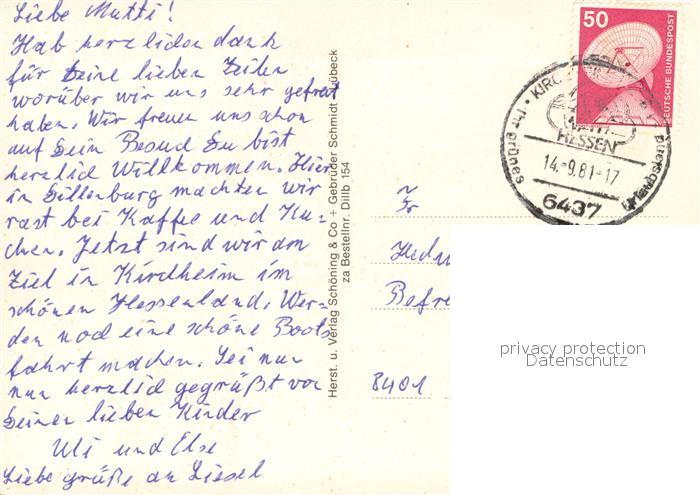 Liebe Mutti!
Hab herzlichen dank
für Deine lieben Zeilen
worüber wir uns sehr gefreut
haben. Wir freuen uns schon
auf Dein Besuch Du bist
herzlich Willkommen. Hier
in Dillenburg machten wir
rast bei Kaffee und Ku-
chen. Jetzt sind wir am
Ziel in Kirchheim im
schönen Hessenland. Wer-
den noch eine schöne Boots
fahrt machen. Sei nun
nun herzlich gegrüßt von
Deinen lieben Kinder
Uli und Else
Liebe grüße an Liesel
Herst. u. Verlag Schöning & Co + Gebrüder Schmidt Lübeck
za Bestellnr. Dillb 154
50
DEUTSCHE BUNDESPOST
KIRC
HESSEN
Ihr grünes
Urlaubsland
14.-9.81-17
6437
Fr
Hedw
8401
privacy protection
Datenschutz